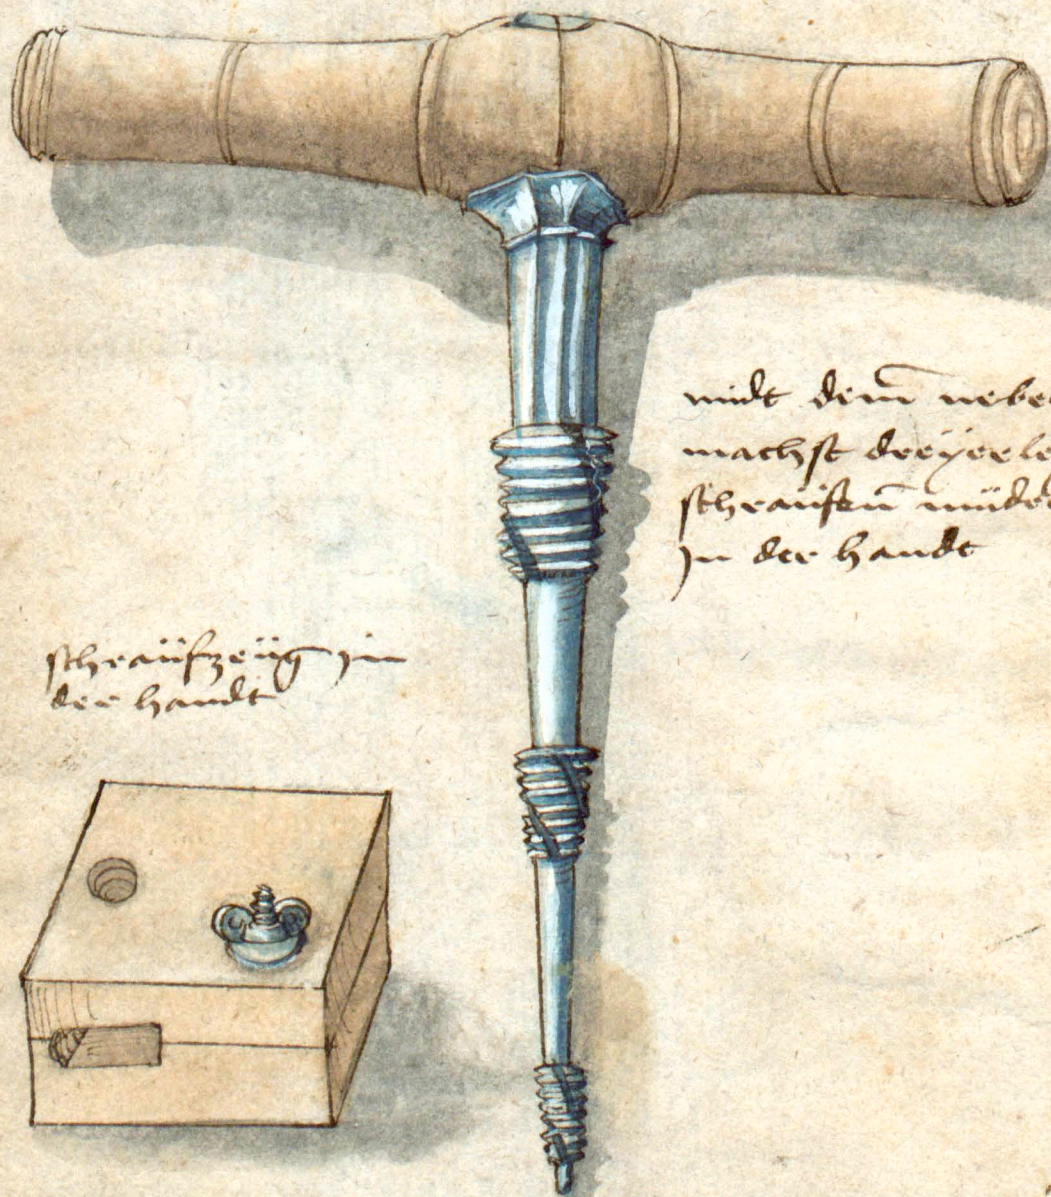 midt dem̄ nebe
machst dreÿerle
schraüfen̄ müde
jn der handt
schraüfzeüg jn
der handt